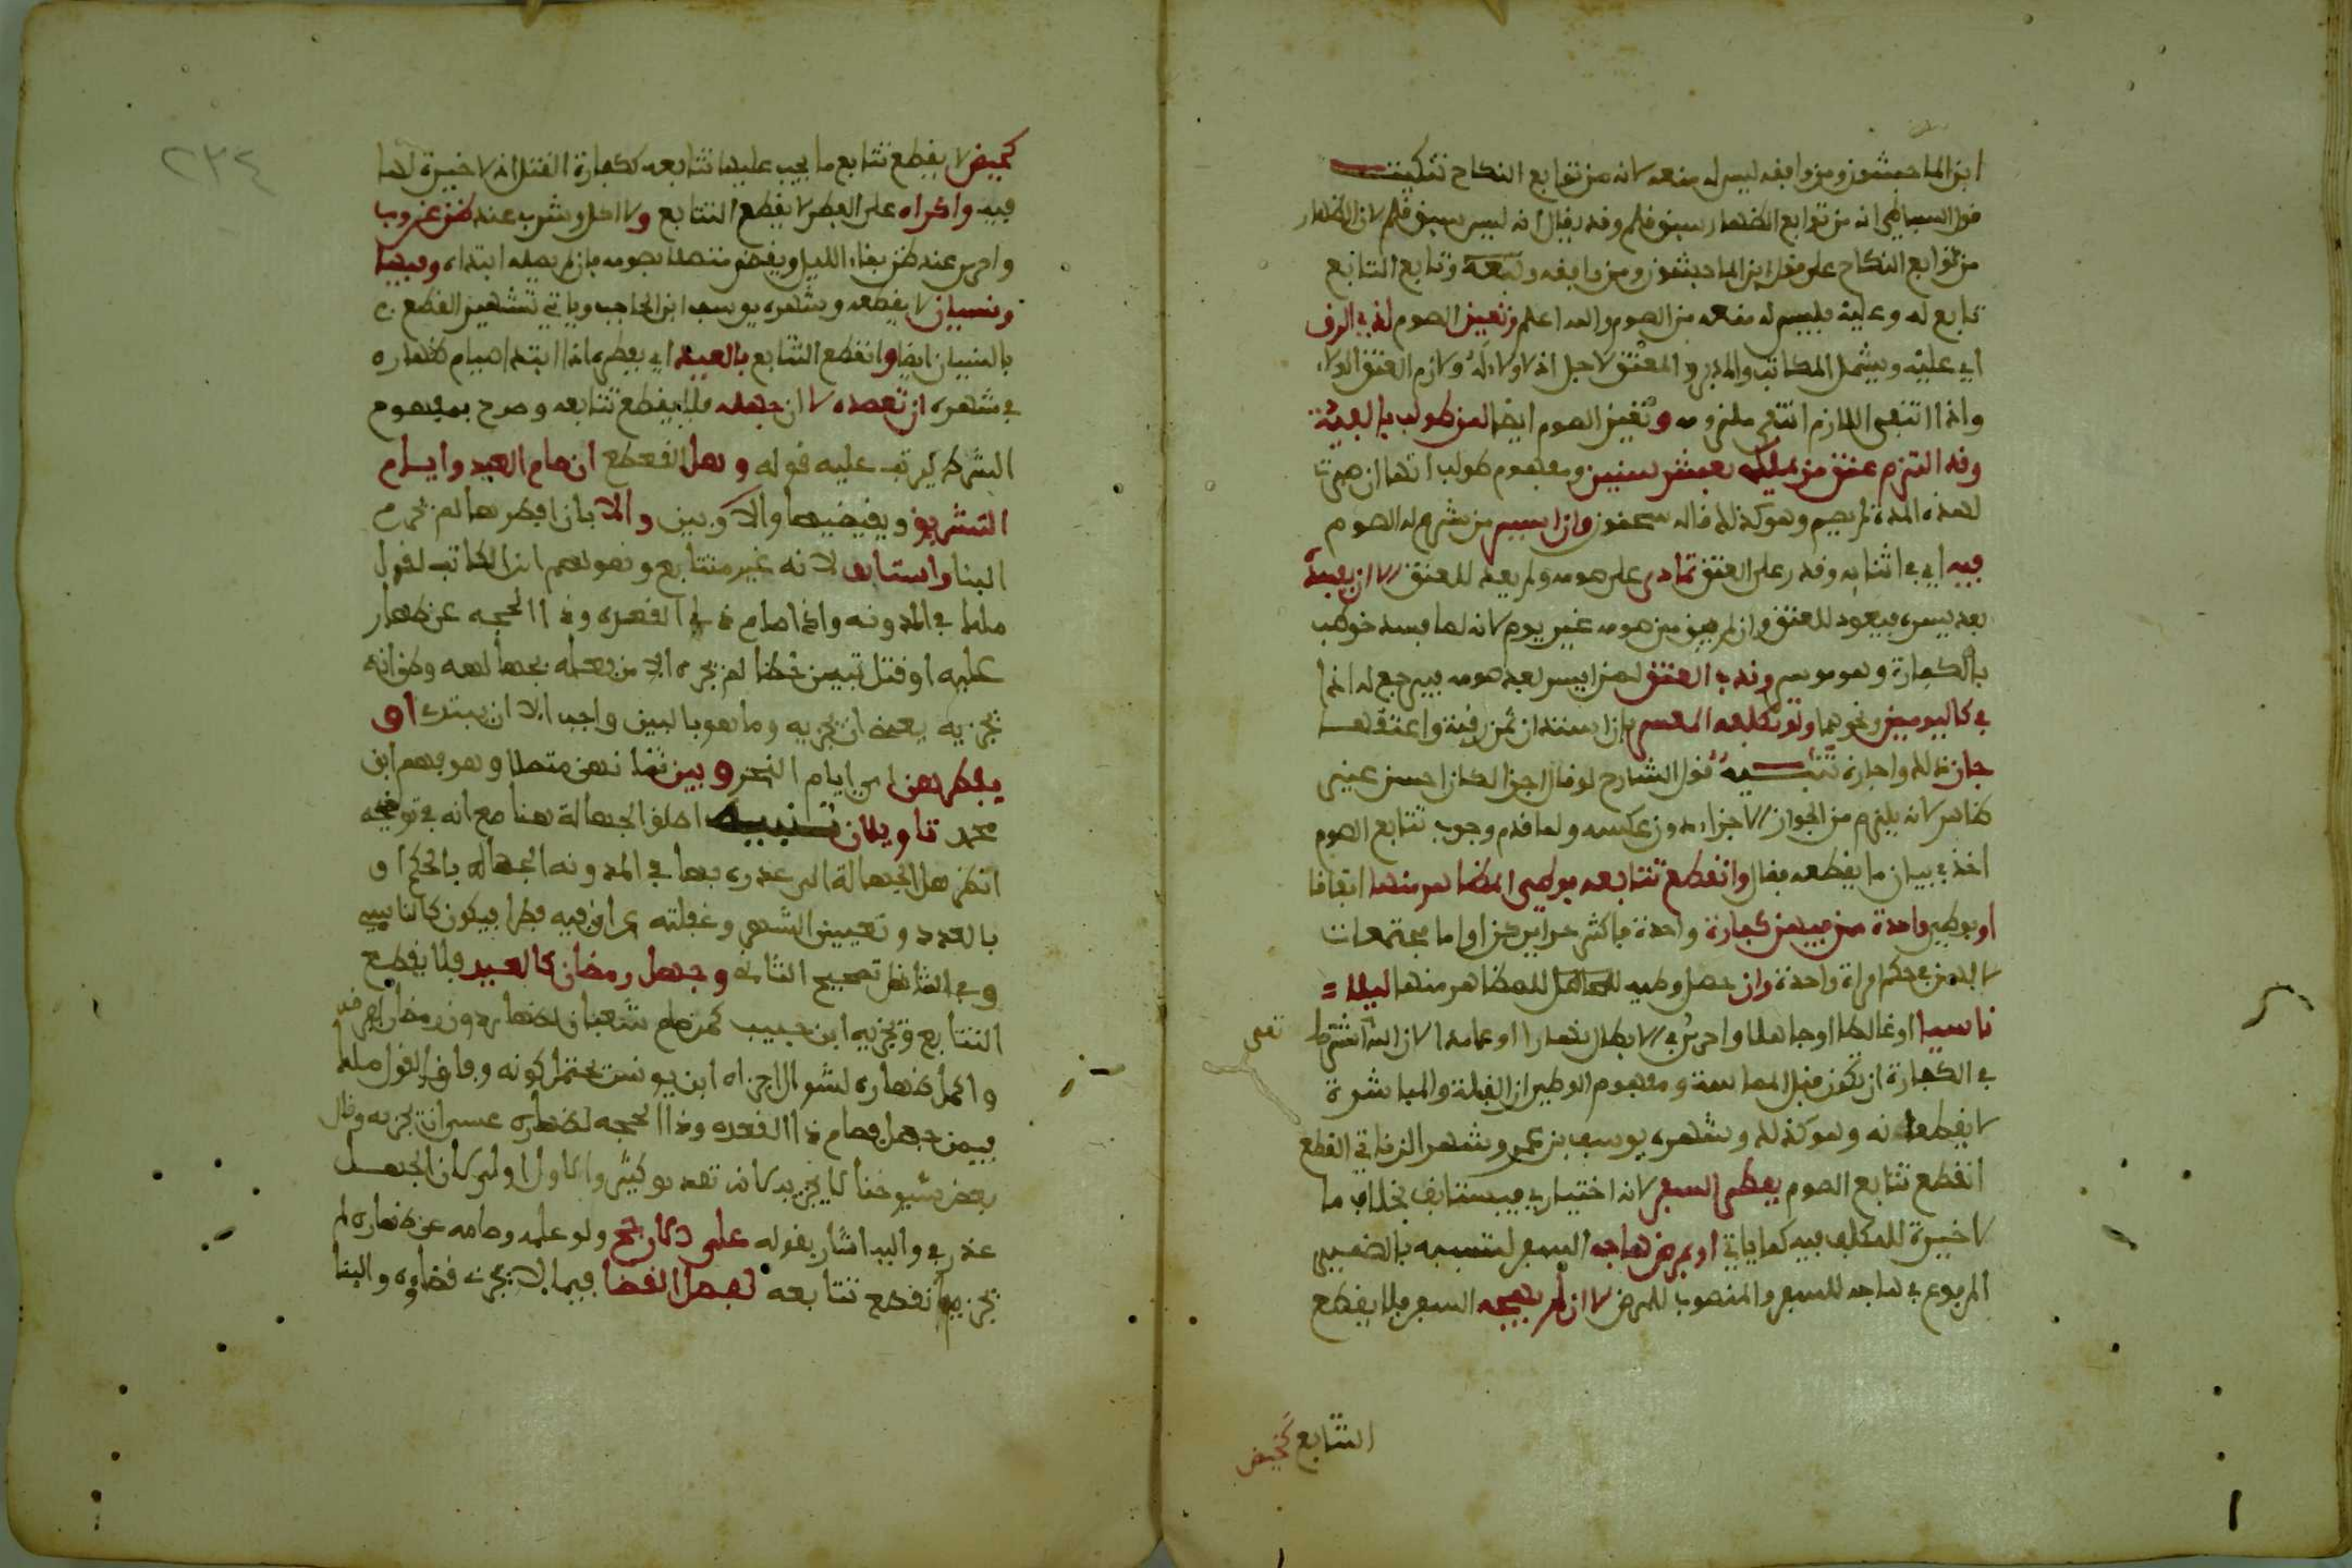 ابن الماجشون ومن وافقه ليس له منعه لانه من توابع النكاح تنكيت
قول البساطي انه من توابع الظهار سبق قلم وقد يقال انه ليس سبق قلم لان الظهار
من توابع النكاح على قول ابن الماجشون ومن وافقه وتبعه وتابع التابع
تابع له وعليه فليس له منعه من الصوم والله اعلم وتعين الصوم لذي الرق
اي عليه ويشمل المكاتب والمدبر والمعتق لاجل اذ لا ولاء له ولازم العتق الولاء
واذا انتفى اللازم انتفى ملزومه وتعين الصوم ايضا لمن طولب بالفيئة
وقد التزم عتق من يملكه بعشر سنين ومفهوم طولب انها ان صبرت
لهذه المدة لم يصم وهو كذلك قاله سحنون وان ايسر من شرع له الصوم
فيه اي في اثنائه وقدر على العتق تمادى على صومه ولم يعد للعتق الا ان يفسده
بعد يسره فيعود للعتق وان لم يبق من صومه غير يوم لانه لما فسد خوطب
بالكفارة وهو موسر وندب العتق لمن ايسر بعد صومه فيرجع له اذا
في كاليومين ونحوهما ولو تكلفه المعسر بان استدان ثمن رقبة واعتقها
جاز ذلك واجزاه تنبيه قول الشارح لو قال اجزا لكان احسن غير
ظاهر لانه يلزم من الجواز الاجزاء دون عكسه ولما قدم وجوب تتابع الصوم
اخذ في بيان ما يقطعه فقال وانقطع تتابعه بوطي المظاهر منها اتفاقا
او بوطي واحدة ممن فيهن كفارة واحدة فاكثر حراير كن او اما مجتمعات
لانهن في حكم امراة واحدة وان حصل وطيه للمظاهر منها ليلا
ناسيا او غالطا او جاهلا واحرى في الابطال نهارا او عامدا لان الله تعلى اشترط
في الكفارة ان تكون قبل المماسة ومفهوم الوطي ان القبلة والمباشرة
لا يقطعانه وهو كذلك وشهره يوسف بن عمر وشهر الزناتي القطع
انقطع تتابع الصوم بفطر السفر لانه اختياري فيستانف بخلاف ما
لا خيرة للمكلف فيه كما ياتي او بمرض هاجه السفر لتسببه بالضمير
المرفوع في هاجه للسفر والمنصوب للمرض لا ان لم يهجه السفر فلا يقطع
التتابع كحيض
كحيض لا يقطع تتابع ما يجب عليها تتابعه ككفارة القتل اذ لا خيرة لها
فيه واكراه على الفطر لا يقطع التتابع ولا اكل وشرب عند ظن غروب
واحرى عند ظن بقاء الليل ويقضي متصلا بصومه فان لم يصله ابتداه وفيها
ونسيان لا يقطعه وشهره يوسف ابن الحاجب وياتي تشهير القطع
بالنسيان ايضا وانقطع التتابع بالعيد اي بفطره اذا ابتدا صيام ظهاره
في شهره ان تعمده لا ان جهله فلا يقطع تتابعه وصرح بمفهوم
الشرط ليرتب عليه قوله وهل القطع ان صام العيد وايام
التشريق ويقضيها والا وبين والا بان افطرها لم يجزه
البنا واستانف لانه غير متتابع ونحوه لهم ابن الكاتب لقول
ملك في المدونة واذا صام ذي القعدة وذا الحجه عن ظهار
عليه او قتل تبين خطا لم يجزه الا من فعله بجهالة وظن انه
يجزيه يعني ان يجزيه وما هو بالبين واجب الا ان يبتدا او
يفطرهن اي ايام النحر ويبني ثانيهن متصلا وهو فهم ابن
محمد تاويلان تنبيه اطلق الجهالة هنا مع انه في توضيحه
انظر هل الجهالة التي عذره بها في المدونة الجهالة بالحكم او
بالعدد وتعيين الشهر وغفلته عن ان فيه فطرا فيكون كالناسي
وفي الشامل تصحيح الثاني وجهل رمضان كالعيد فلا يقطع
التتابع ويجزيه ابن حبيب كمن صام شعبان لظهاره ورمضان لفرضه
واكمل ظهاره لشوال اجزاه ابن يونس يحتمل كونه وفاق لقول ملك
فيمن جهل فصام ذا القعدة وذا الحجه لظهاره عسى ان يجزيه وقال
بعض شيوخنا لا يجزيه لانه تفريق كثير والاول اولى لان الجهل
عذر في واليه اشار بقوله على الارجح ولو علمه وصامه عن ظهاره لم
يجزيه انقطع تتابعه بفصل القضا فيما لا يجزى قضاؤه والبنا
٢٣٤